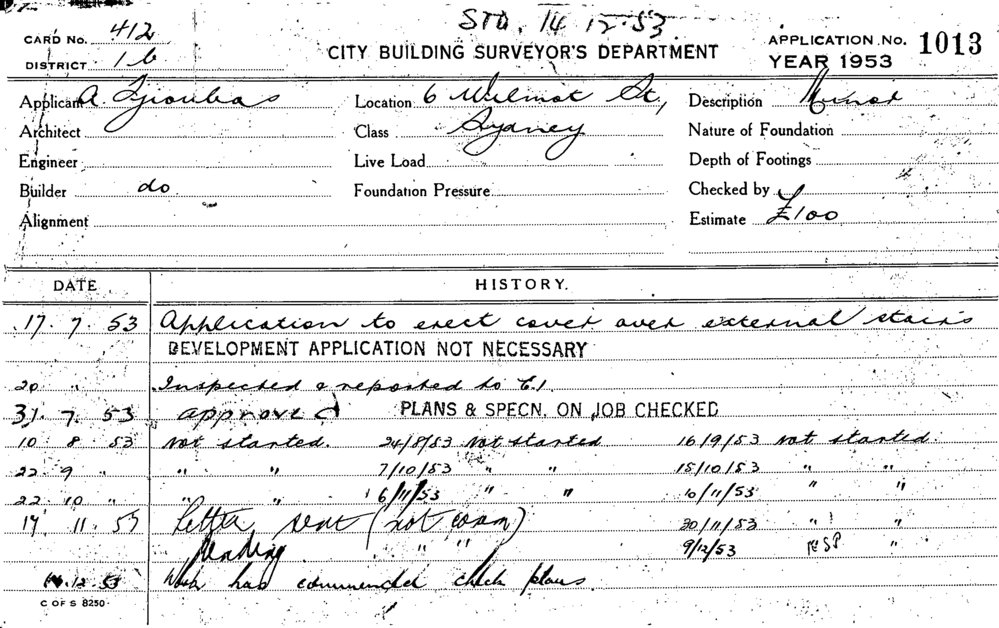 STD. 14 12.53.
CARD No. 412
CITY BUILDING SURVEYOR'S DEPARTMENT
APPLICATION No. 1013
DISTRICT 1b
YEAR 1953
Applicant A
Location 6 Wilmot St,
Description Minor
Architect
Class Sydney
Nature of Foundation
Engineer
Live Load
Depth of Footings
Builder do
Foundation Pressure
Checked by
Alignment
Estimate £100
DATE
HISTORY.
17. 7. 53 Application to erect cover over external stairs
DEVELOPMENT APPLICATION NOT NECESSARY
20 " Inspected & reported to C.I.
31. 7. 53 approved PLANS & SPECN. ON JOB CHECKED
10. 8. 53 Not started. 24/8/53 Not started 16/9/53 Not started.
22. 9 " " " 7/10/53 " " 15/10/53 " "
22. 10 " " " 6/11/53 " " 10/11/53 " "
11. 53 Letter sent (not comm) 20/11/53 " "
" " 9/12/53 "
12. 53 Work has commenced check plans.
C OF S 8250